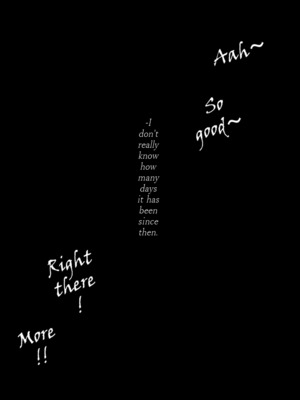 Aah~
So
good~
-I
don't
really
know
how
many
days
it has
been
since
then.
Right
there
!
More
!!